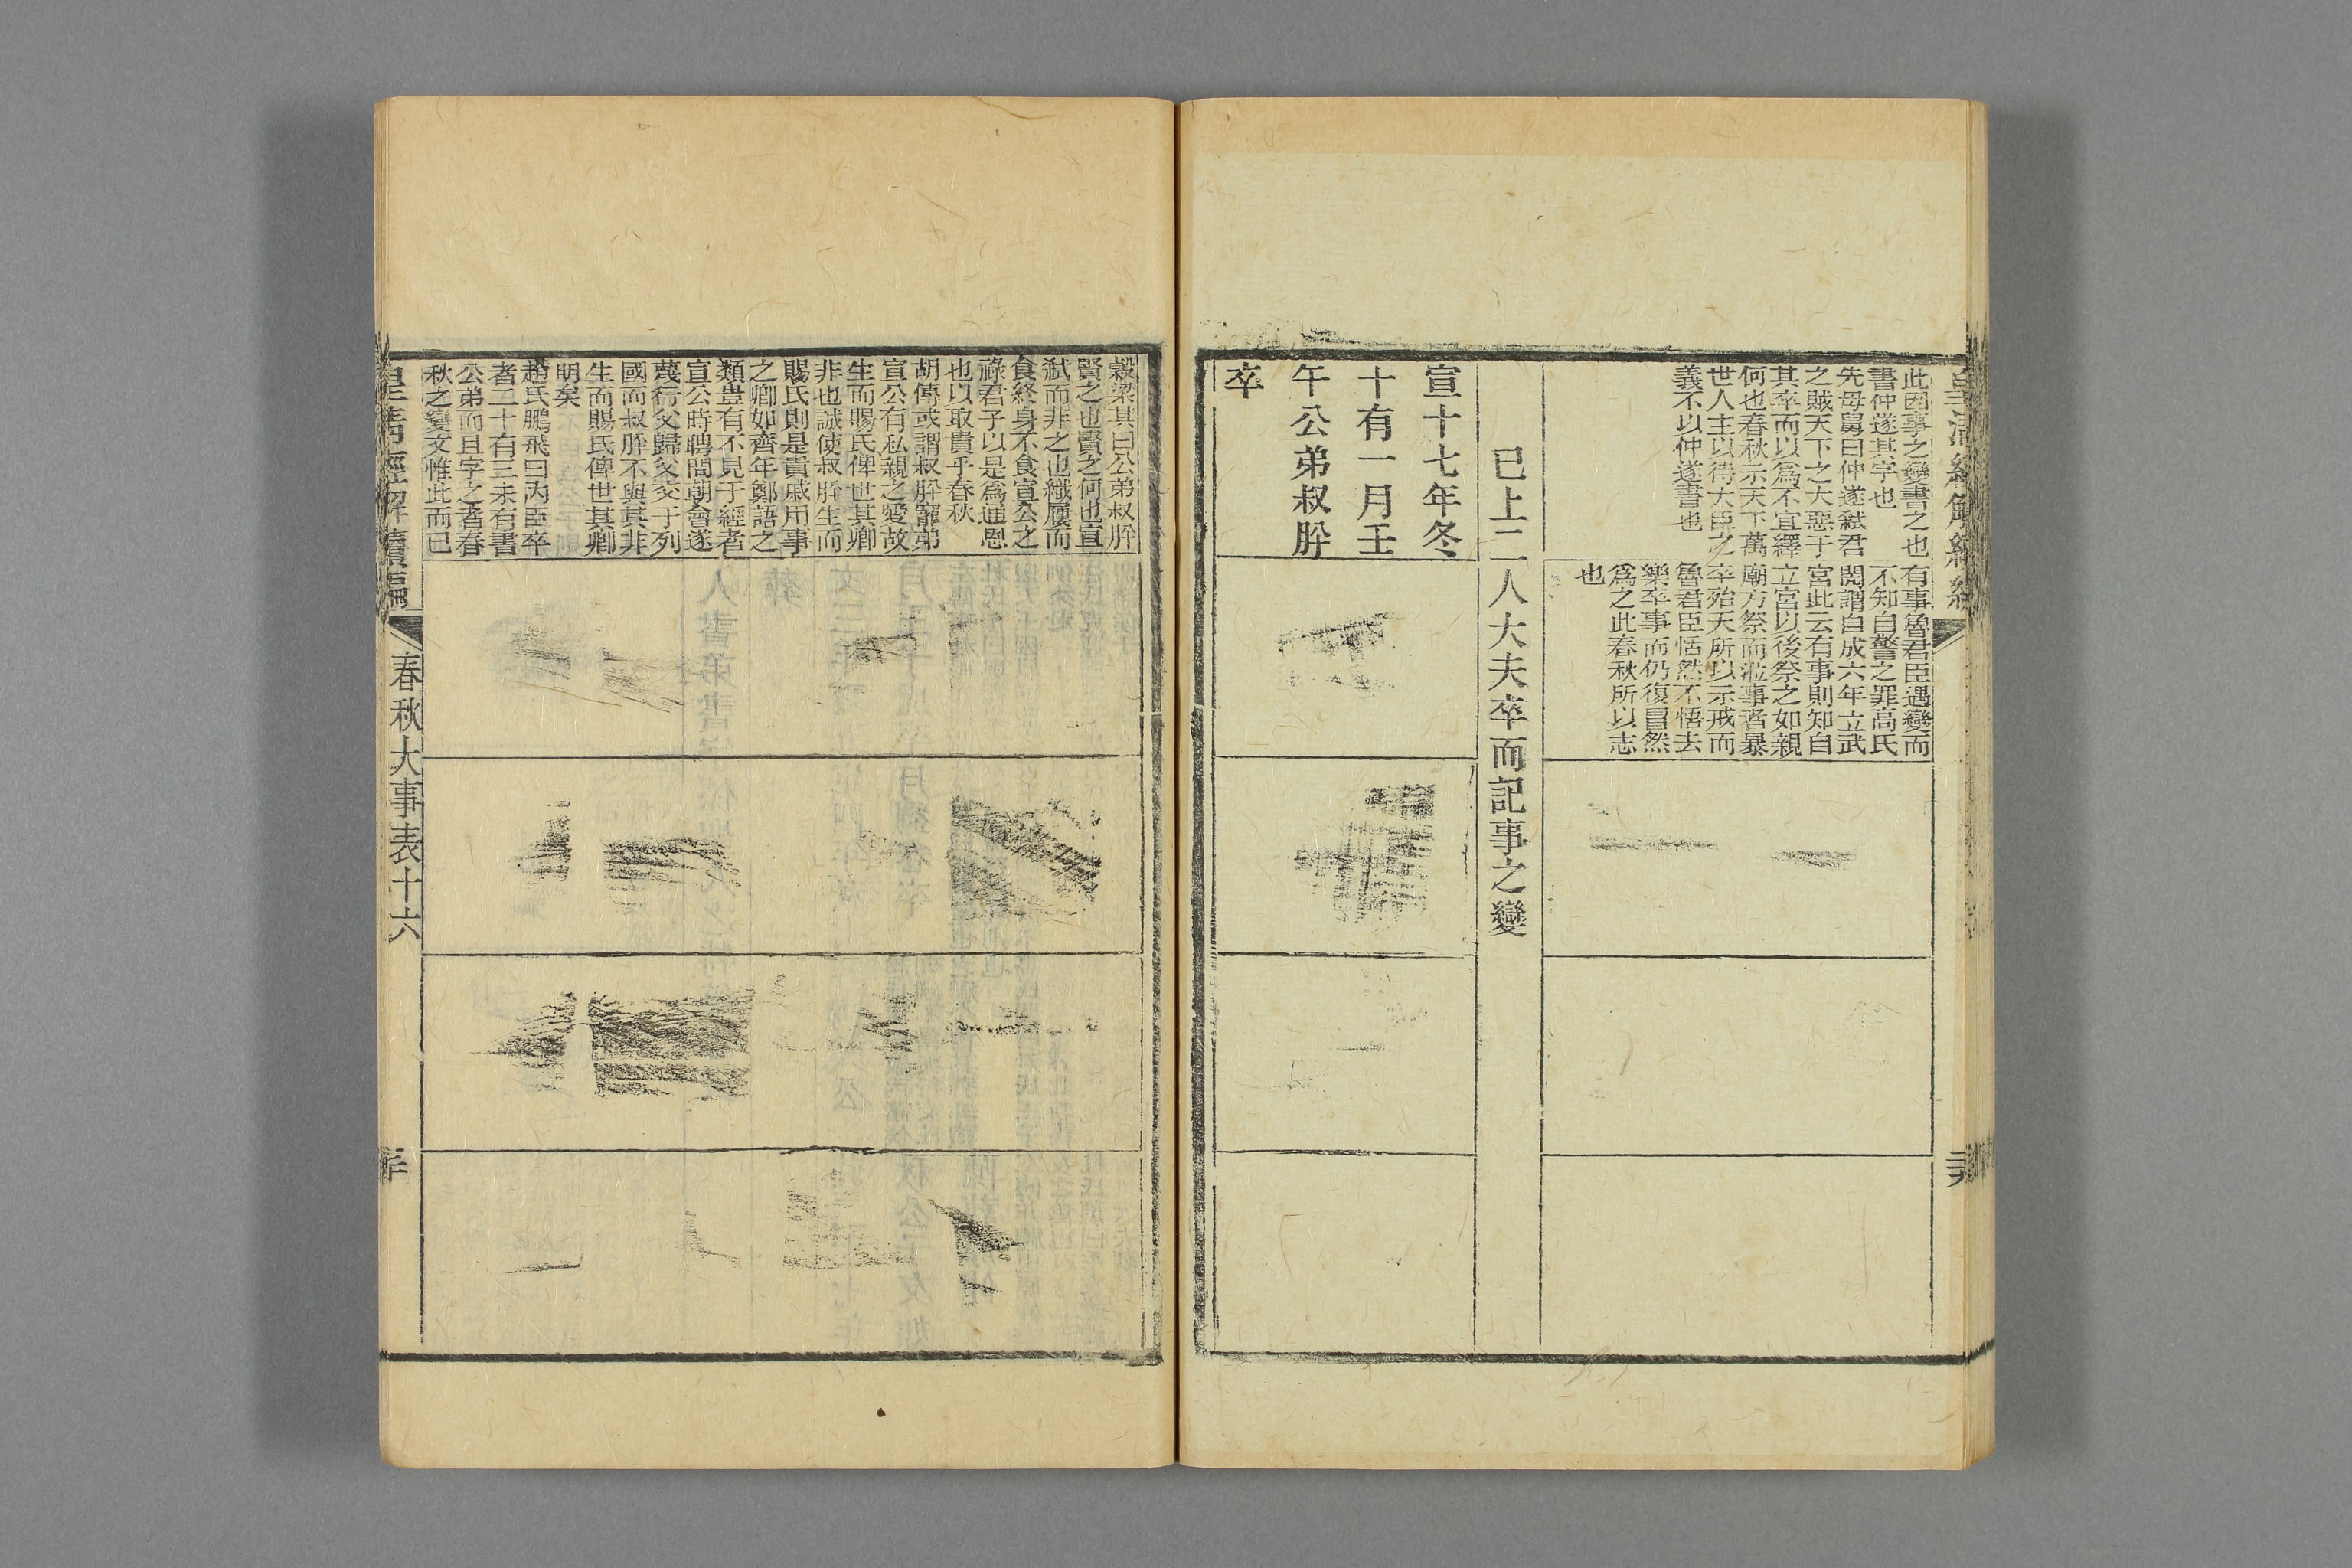 此因事之變書之也
書仲遂其字也
先母舅曰仲遂弑君
之賊天下之大惡于
其卒而以爲不宜繹
何也春秋示天下萬
世人主以待大臣之
義不以仲遂書也
有事魯君臣遇變而
不知自警之罪高氏
閌謂自成六年立武
宮此云有事則知自
立宮以後祭之如親
廟方祭而涖事者暴
卒殆天所以示戒而
魯君臣恬然不悟去
樂卒事而仍復冒然
爲之此春秋所以志
也
已上二人大夫卒而記事之變
宣十七年冬
十有一月壬
午公弟叔肸
卒
穀梁其曰公弟叔肸
賢之也賢之何也宣
弑而非之也織屨而
食終身不食宣公之
祿君子以是爲通恩
也以取貴乎春秋
胡傳或謂叔肸寵弟
宣公有私親之愛故
生而賜氏俾世其卿
非也誠使叔肸生而
賜氏則是貴戚用事
之卿如齊年鄭語之
類豈有不見于經者
宣公時聘問朝會遂
蔑行父歸父交于列
國而叔肸不與其非
生而賜氏俾世其卿
明矣
趙氏鵬飛曰內臣卒
者二十有三未有書
公弟而且字之者春
秋之變文惟此而已
皇清經解續編
春秋大事表十六